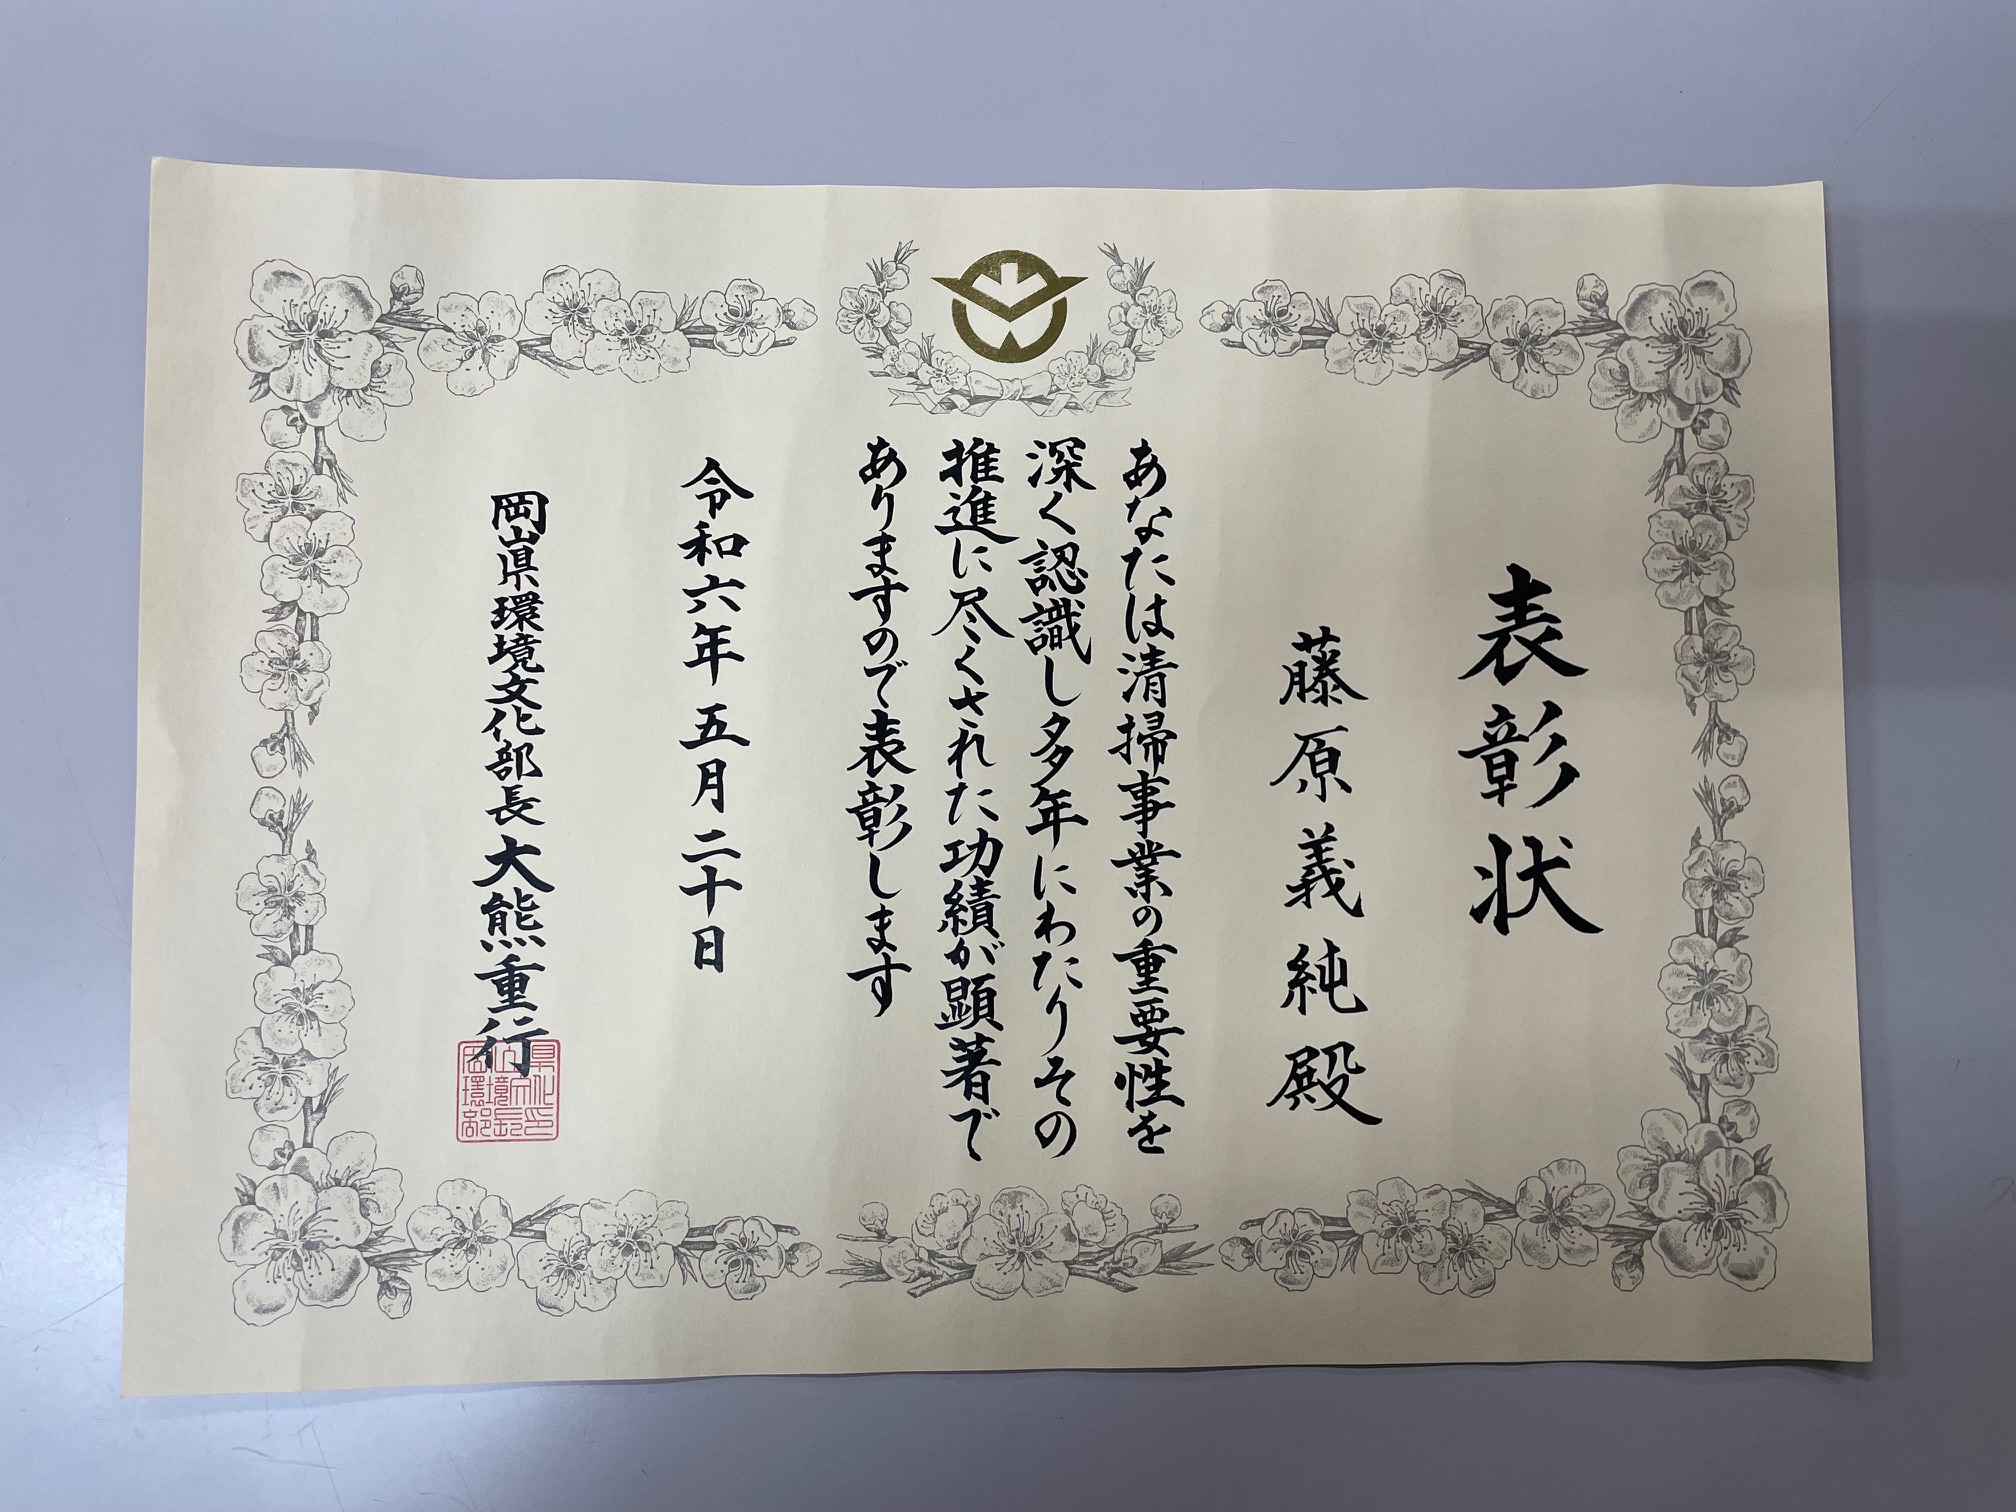 表彰状
藤原義純殿
あなたは清掃事業の重要性を
深く認識し多年にわたりその
推進に尽くされた功績が顕著で
ありますので表彰します
令和六年五月二十日
岡山県環境文化部長大熊重行
岡山県
環境文化
部長印